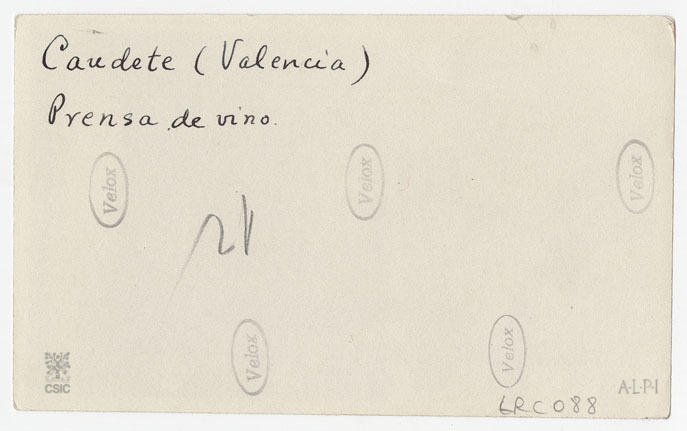 Caudete (Valencia)
Prensa de vino.
Velox
Velox
Velox
Velox
Velox
CSIC
LRC088
A·L·P·I